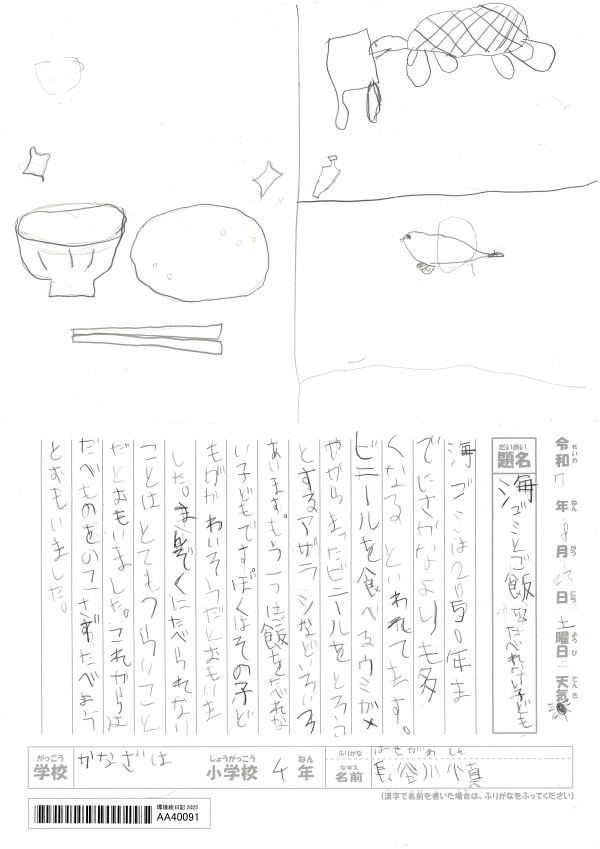 令和7年8月23日土曜日天気
れいわ ねん がつ にち ようび てんき
だいめい
題名
海ゴミとご飯をたべれない子ども
海ゴミは2050年ま
でにさかなよりも多
くなるといわれてます。
ビニールを食べるウミガメ
やからまったビニールをとろう
とするアザラシなどいろいろ
あいます。もう一つはご飯をたべれな
い子どもです。ぼくはその子ど
もがかわいそうだとおもいま
した。まんぞくにたべられない
ことはとてもつらいこと
だとおもいました。これからは
たべものをのこさずたべよう
とおもいました。
がっこう
学校
かなざは
しょうがっこう
小学校
4
ねん
年
ふりがな
はせがわ しん
なまえ
名前
長谷川 真
(漢字で名前を書いた場合は、ふりがなをふってください)
環境絵日記 2025
AA40091